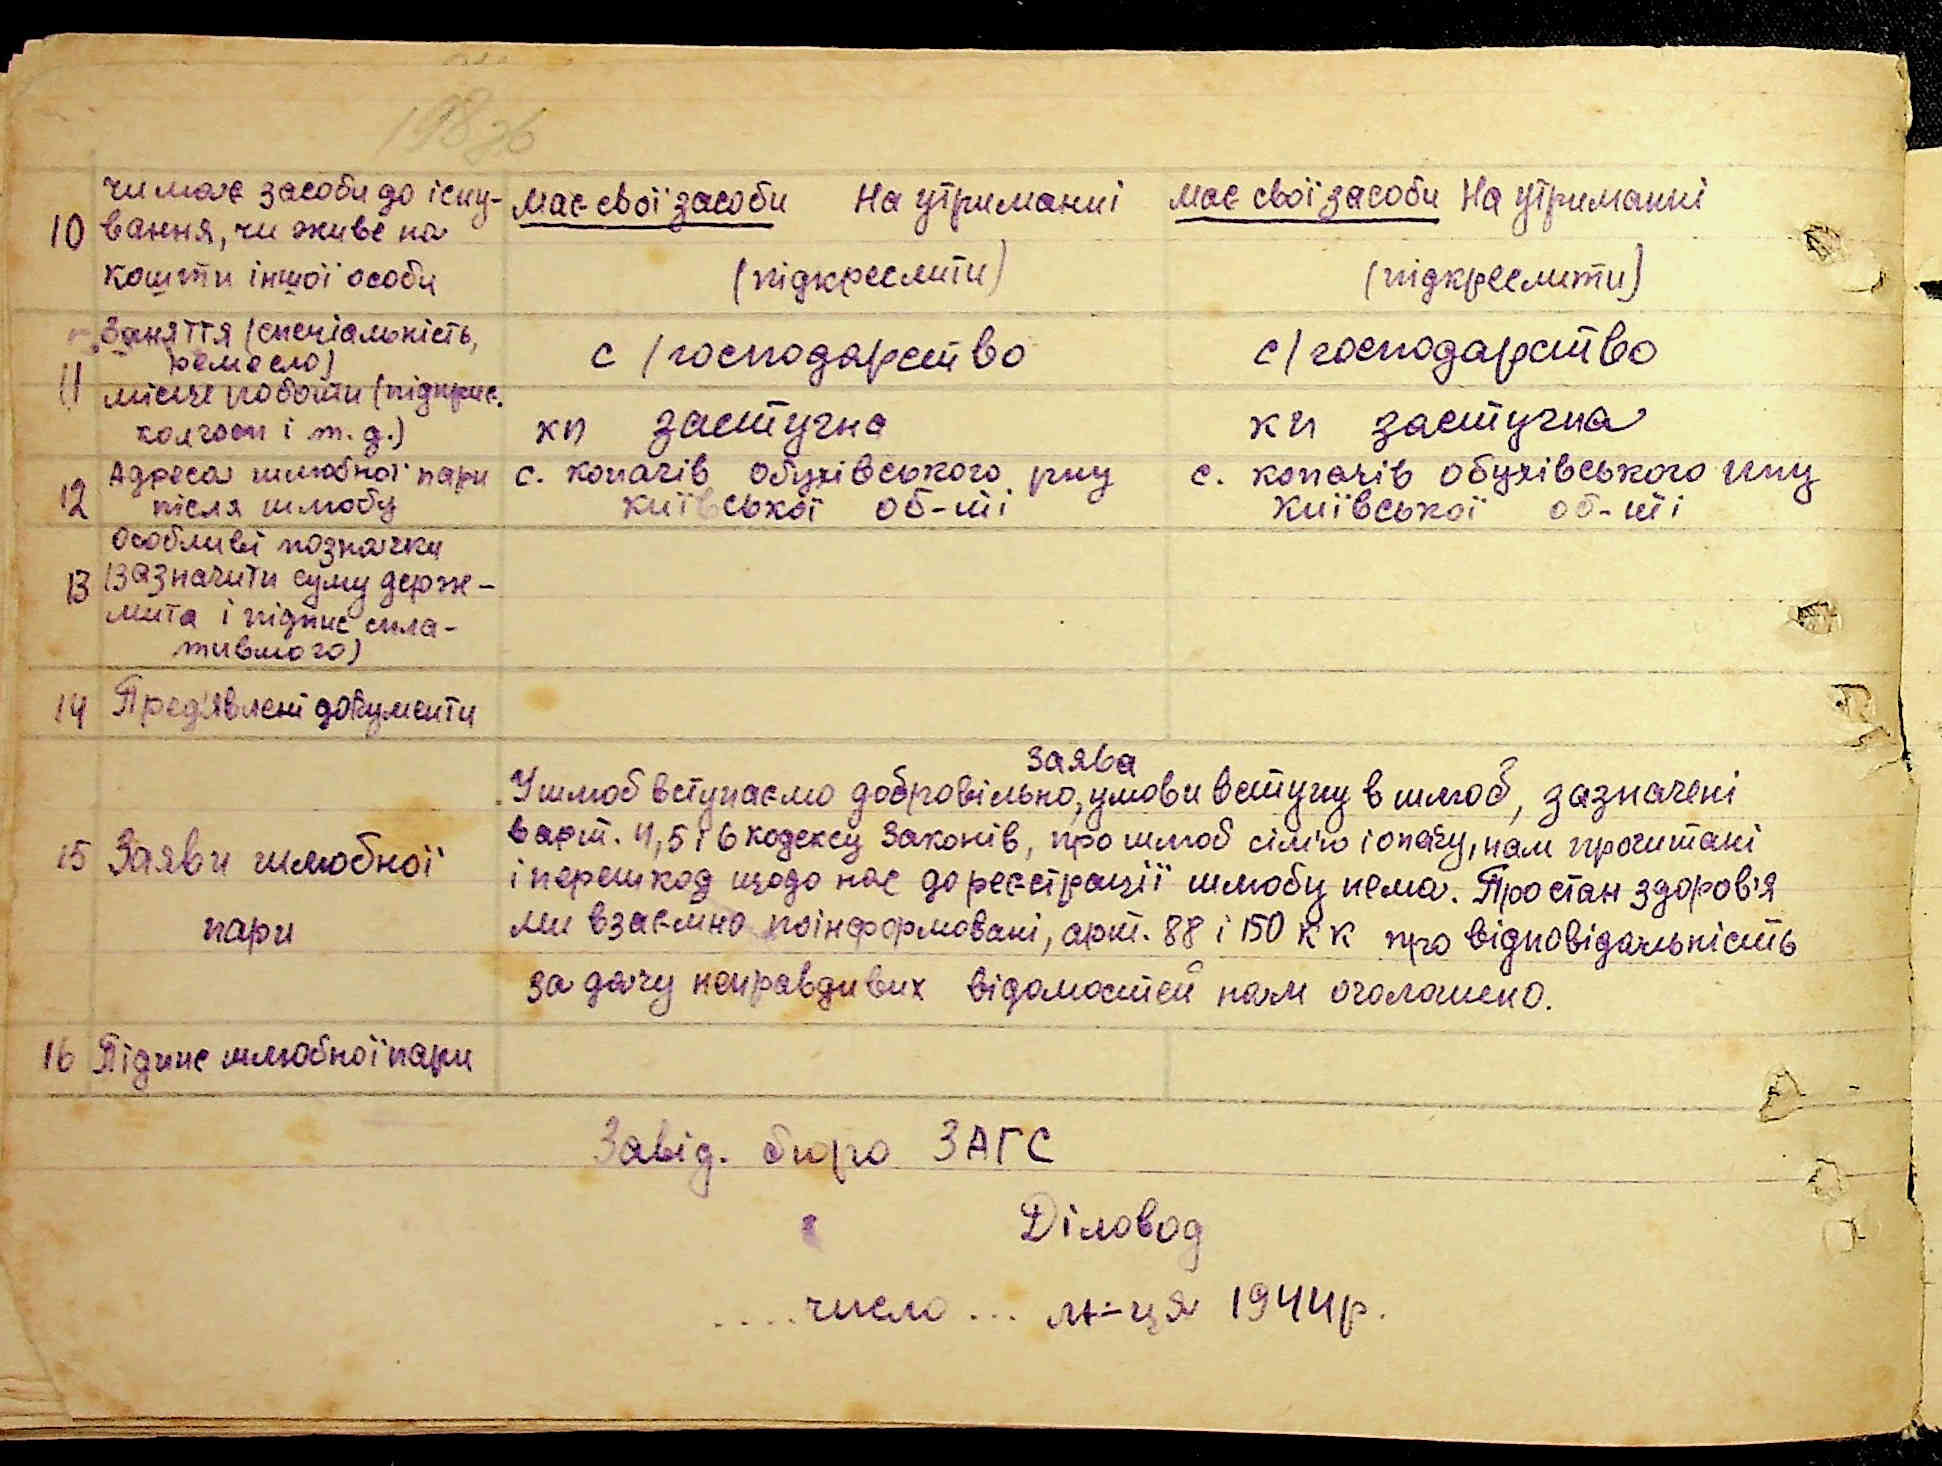 198 зв
10 чи має засоби до існу- має свої засоби На утриманні має свої засоби На утриманні
вання, чи живе на
кошти іншої особи (підкреслити) (підкреслити)
11 Заняття (спеціальність, с/господарство с/господарство
ремесло)
місце роботи (підприє. кп заступна кп заступна
колгосп і т. д.)
12 Адреса шлюбної пари с. копачів обухівського рну с. копачів обухівського рну
після шлюбу київської об-ті київської об-ті
13 Особливі позначки
(Зазначити суму держ-
мита і підпис спла-
тившого)
14 Пред'явлені документи
заява
15 Заяви шлюбної У шлюб вступаємо добровільно, умови вступу в шлюб, зазначені
в арт. 4,5 і 6 кодексу Законів, про шлюб сім'ю і опіку, нам прочитані
і перешкод щодо нас до реєстрації шлюбу нема. Про стан здоров'я
пари ми взаємно поінформовані, арт. 88 і 150 КК про відповідальність
за дачу неправдивих відомостей нам оголошено.
16 Підпис шлюбної пари
Завід. бюро ЗАГС
Діловод
....число... м-ця 1944р.